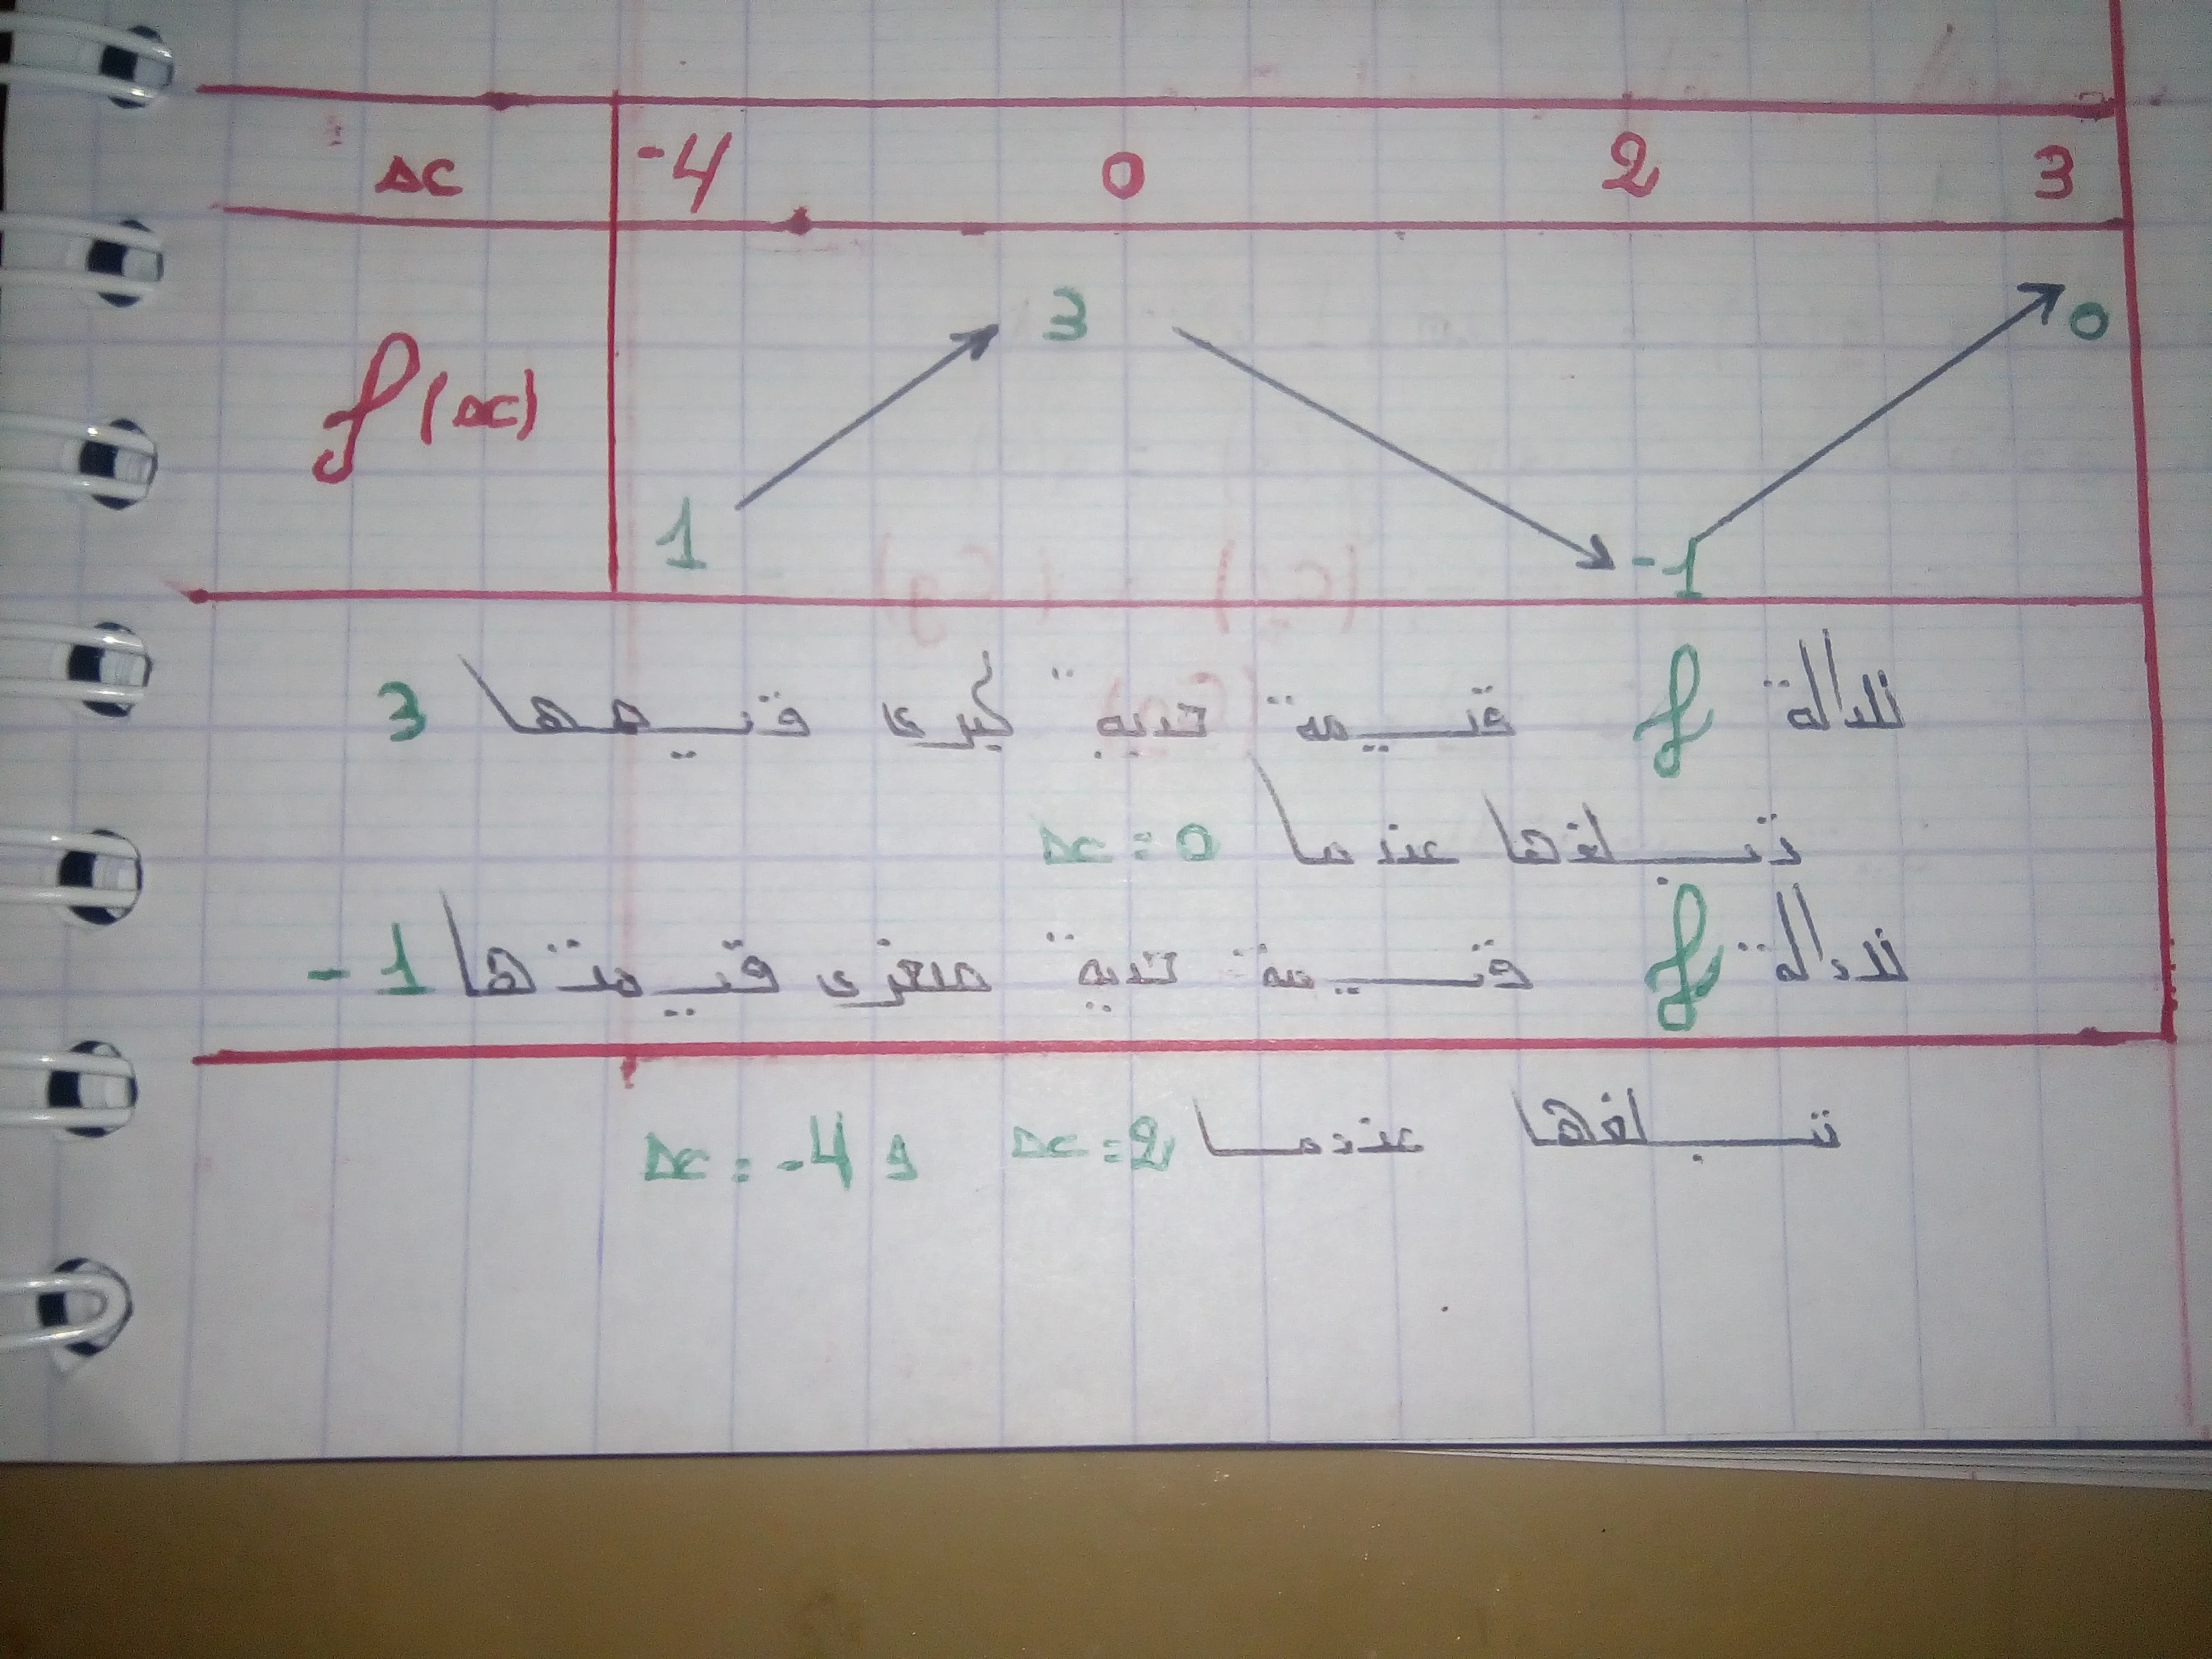 x -4 0 2 3
f(x) 1 3 -1 0
للدالة f قيمة حدية كبرى قيمها 3
تبلغها عندما x = 0
للدالة f قيمة حدية صغرى قيمتها -1
تبلغها عندما x = 2 و x = -4